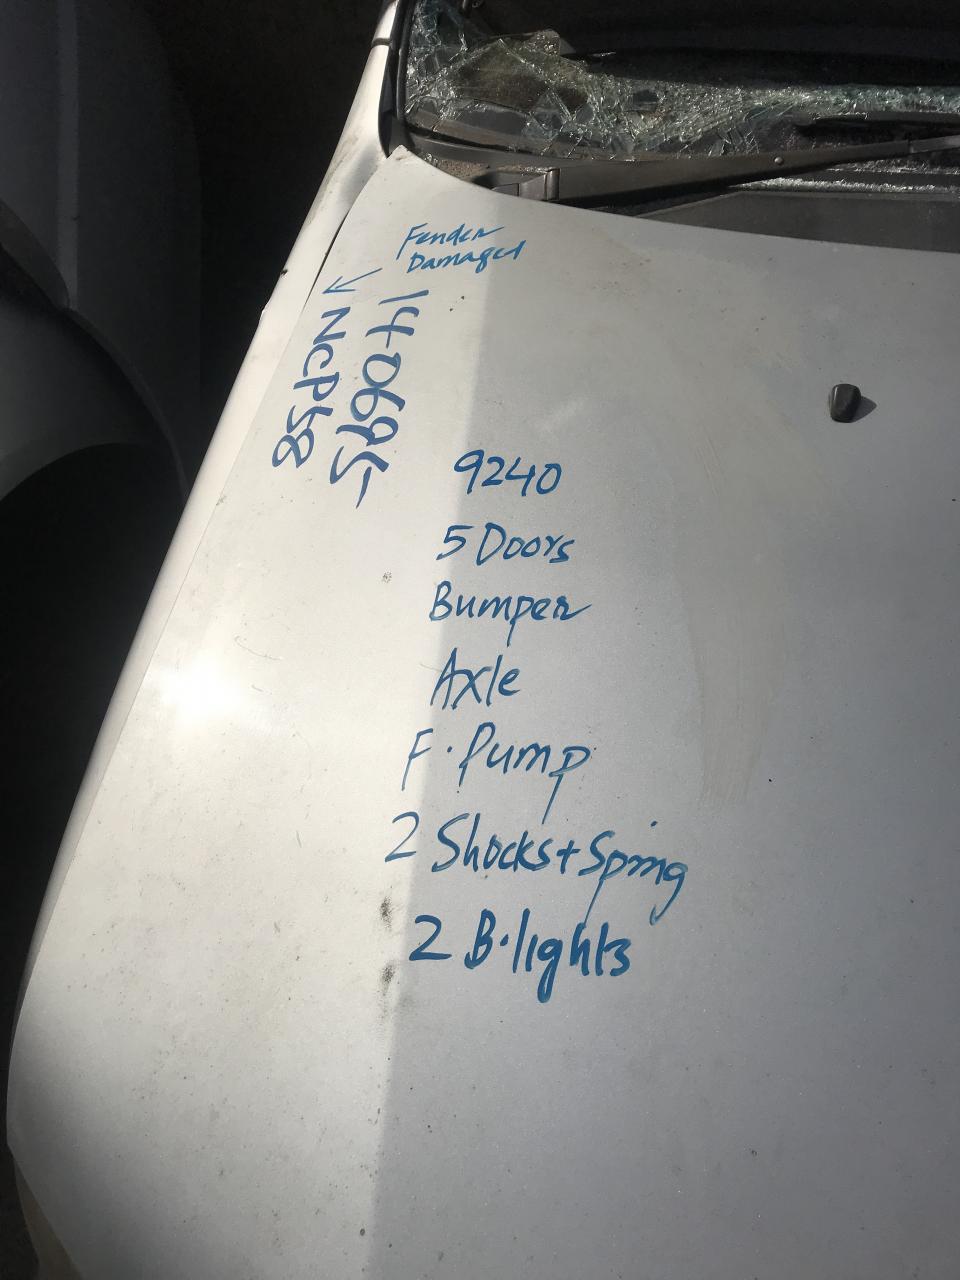 Fender
Damaged
140695
NCP58
9240
5 Doors
Bumper
Axle
F. Pump
2 Shocks + Spring
2 B. lights